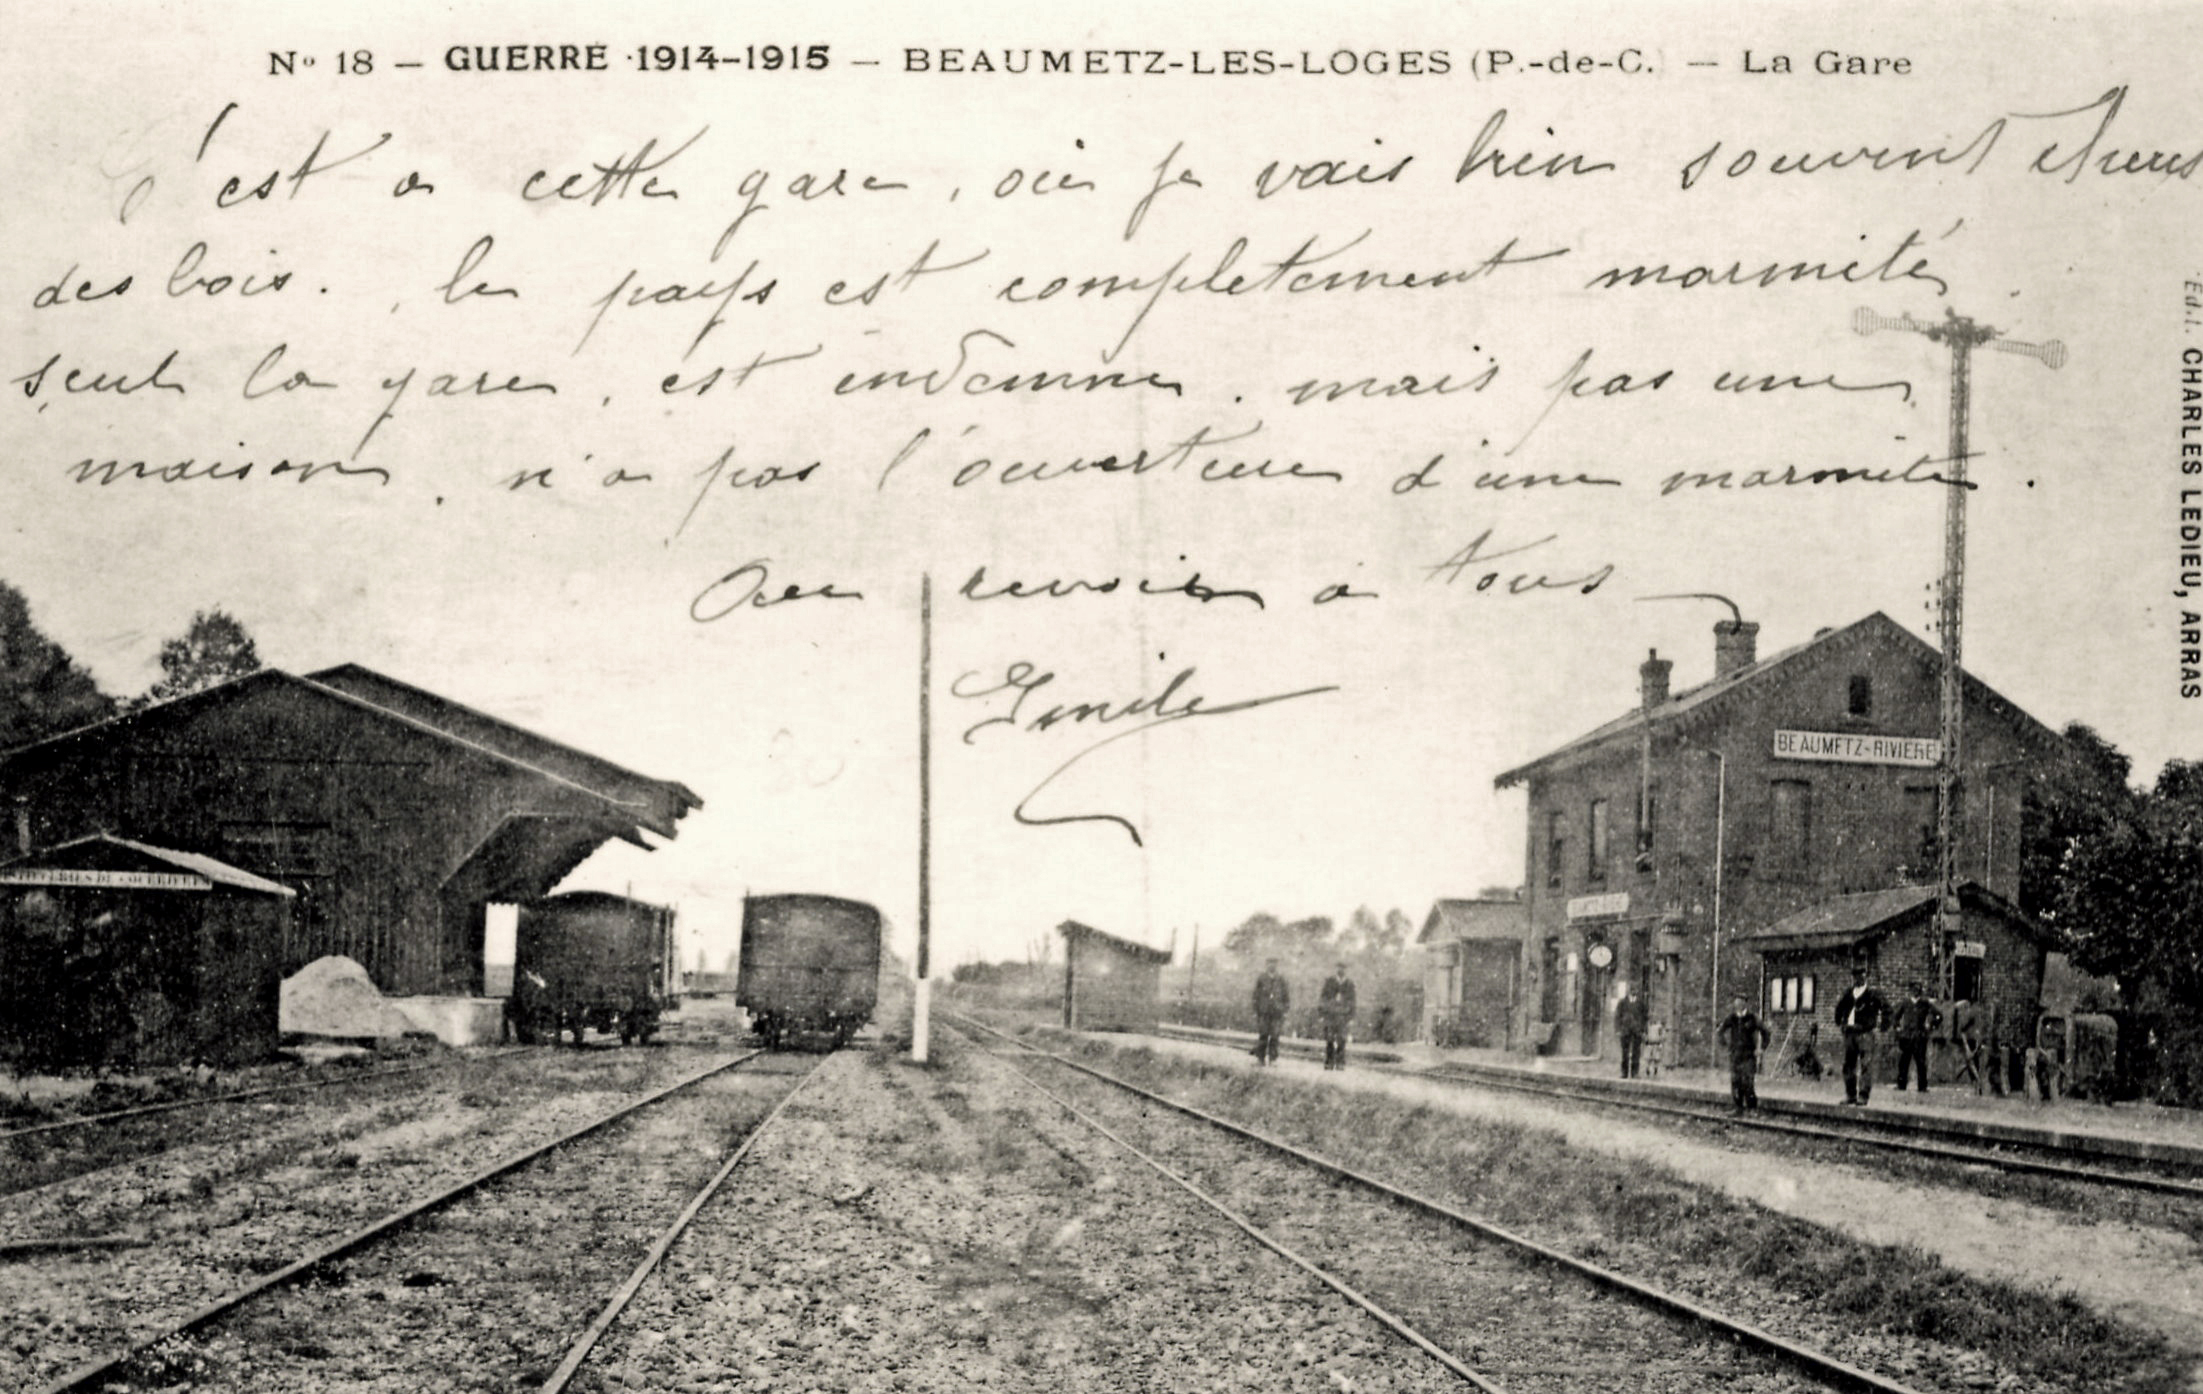 Nº 18 — GUERRE 1914-1915 — BEAUMETZ-LES-LOGES (P.-de-C.) — La Gare
C'est a cette gare, où je vais bien souvent
des bois. le pays est completement marmité
seul la gare, est indemne. mais pas une
maison. n'a pas l'ouverture d'une marmite.
Au revoir à tous
Emile
Edit. CHARLES LEDIEU, ARRAS
BEAUMETZ-RIVIERE